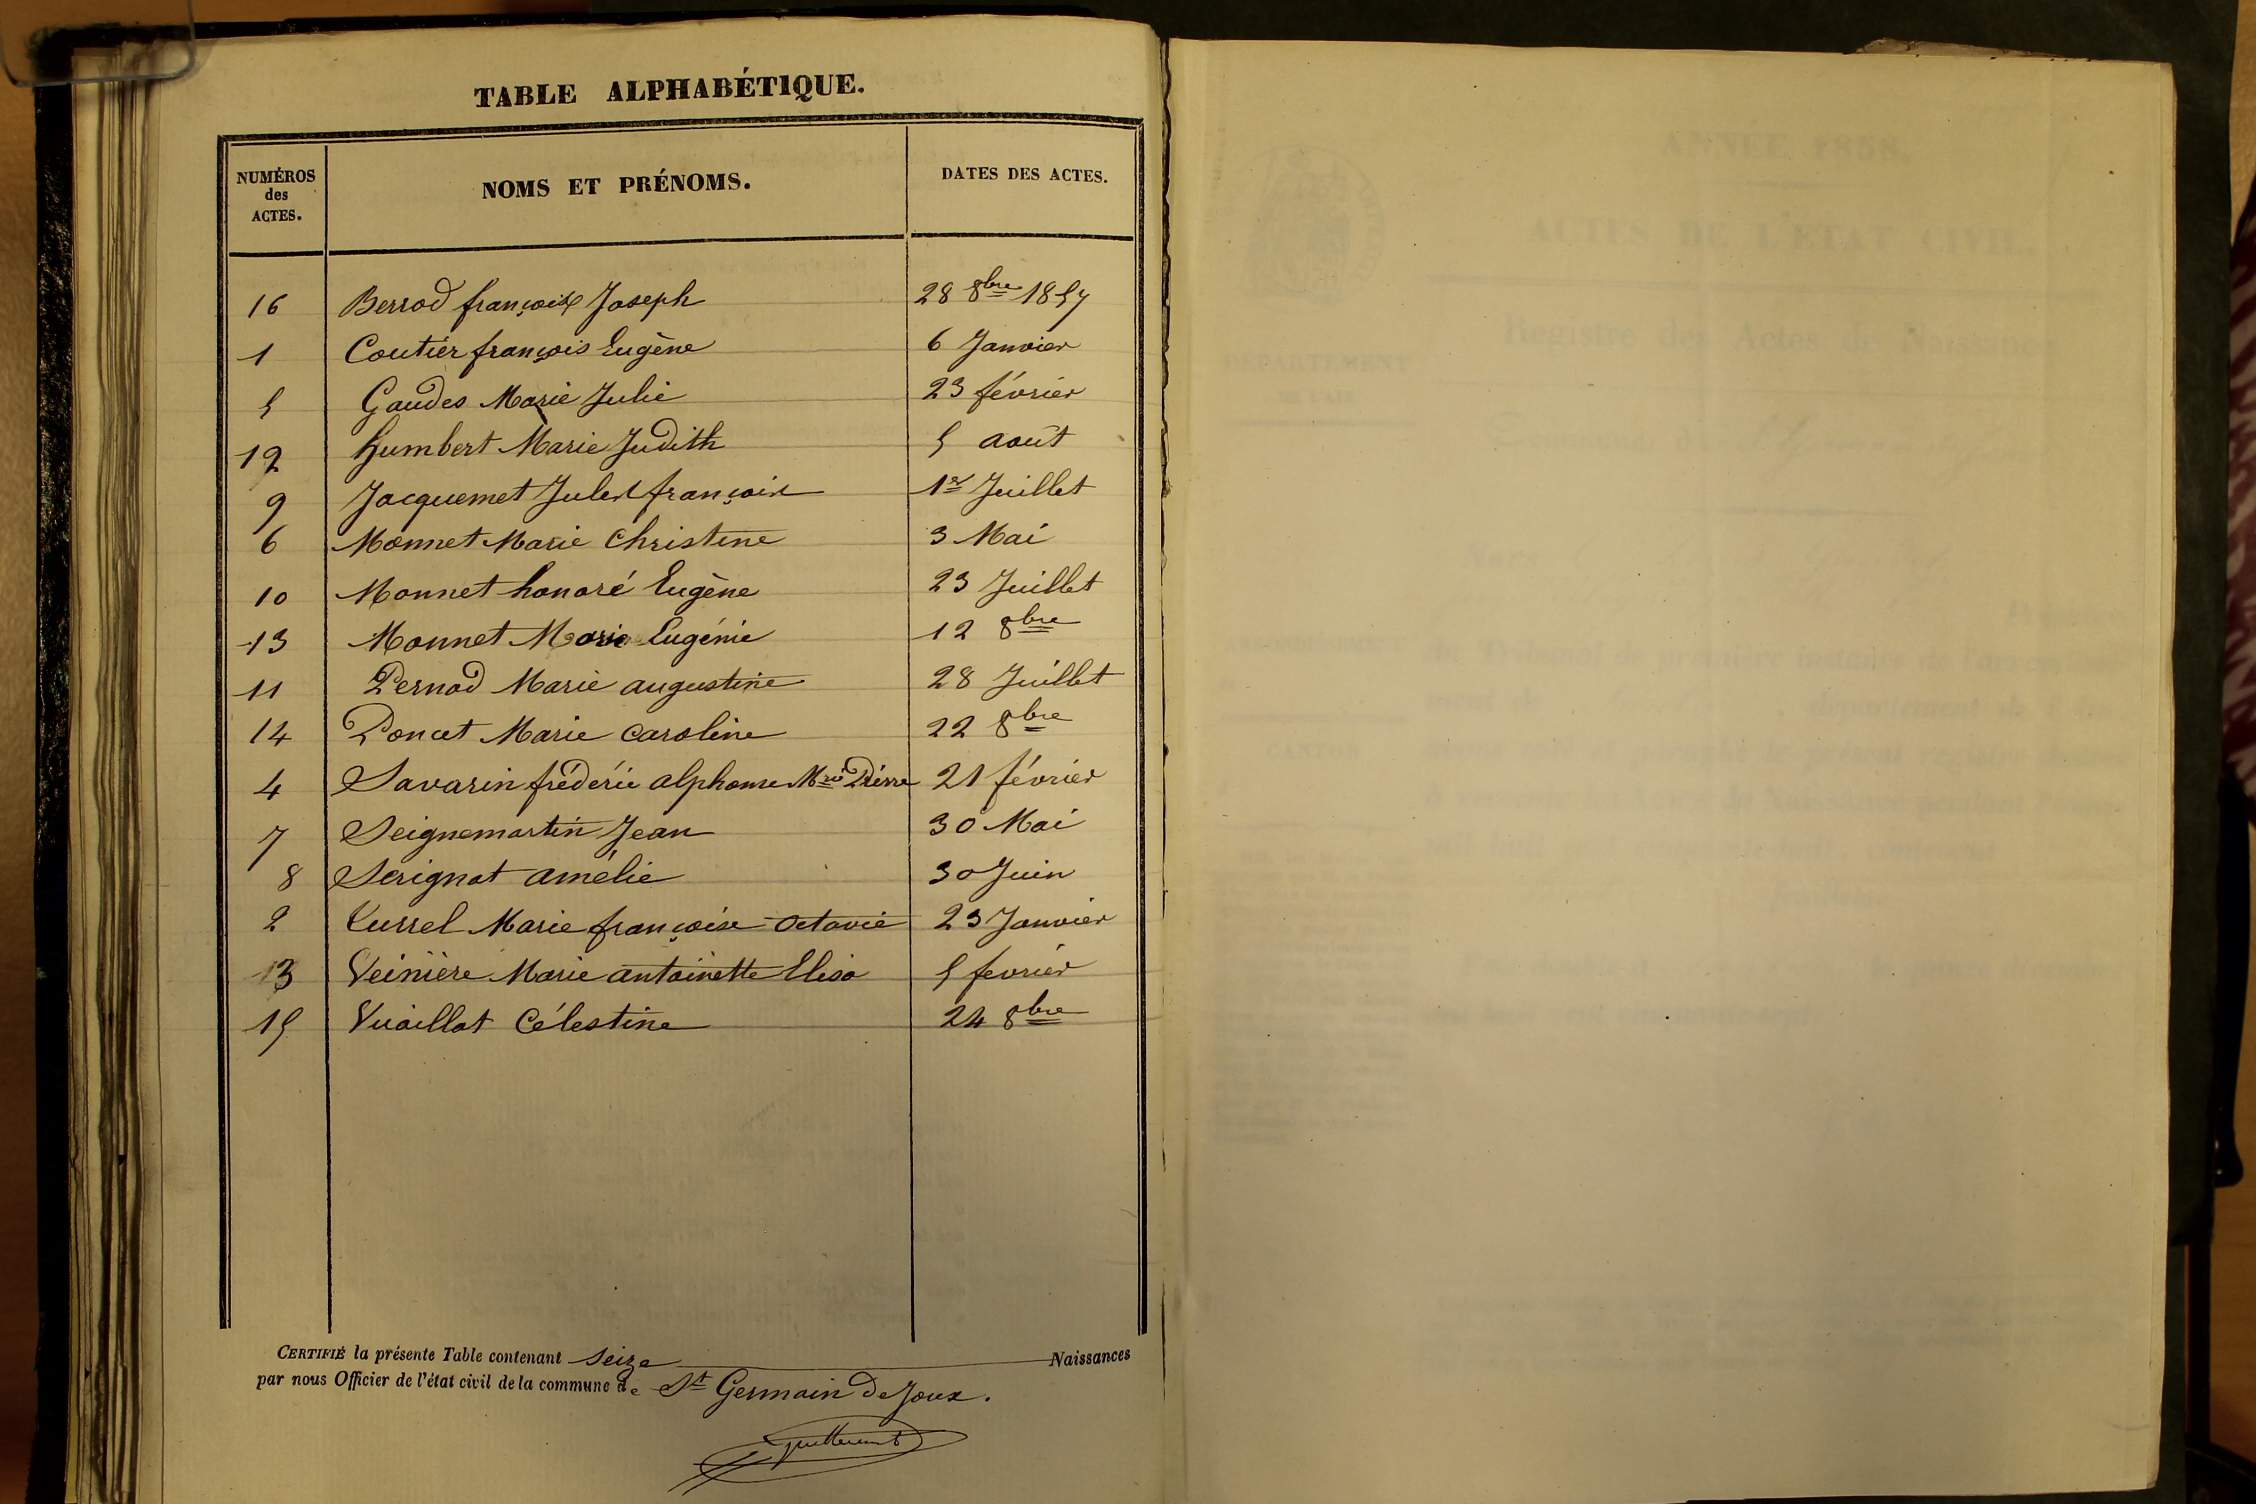 TABLE ALPHABÉTIQUE.
NUMÉROS des ACTES. NOMS ET PRÉNOMS. DATES DES ACTES.
16 Berrod françois Joseph 28 8bre 1857
1 Coutier françois Eugène 6 Janvier
5 Gaudes Marie Julie 23 février
12 humbert Marie Judith 5 août
9 Jacquemet Jules françois 1er Juillet
6 Monnet Marie Christine 3 Mai
10 Monnet honoré Eugène 23 Juillet
13 Monnet Marie Eugénie 12 8bre
11 Pernod Marie augustine 28 Juillet
14 Poncet Marie Caroline 22 8bre
4 Savarin frédéric alphonse Mrie Pierre 21 février
7 Seignemartin Jean 30 Mai
8 Serignat amélie 30 Juin
2 Turrel Marie françoise octavie 23 Janvier
3 Veinière Marie antoinette Elisa 5 fevrier
15 Vuaillat Célestine 24 8bre
CERTIFIÉ la présente Table contenant seize Naissances
par nous Officier de l'état civil de la commune de St Germain de Joux.
ANNÉE 1858.
ACTES DE L'ÉTAT CIVIL.
Registre des Actes de Naissance
DÉPARTEMENT
CANTON